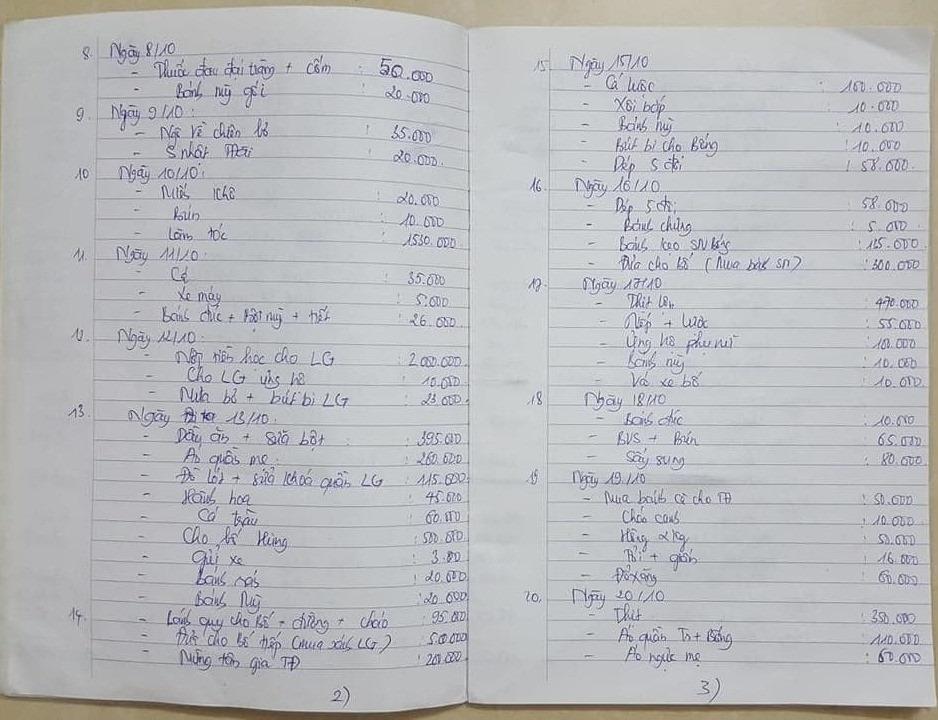 8. Ngày 8/10
- Thuốc đau đại tràng + cốm : 50.000
- Bánh mỳ gối : 20.000
9. Ngày 9/10 :
- Ngô về chiên bơ : 35.000
- S nhật : 20.000
10 Ngày 10/10 :
- Miến khô : 20.000
- Bún : 10.000
- Làm tóc : 1530.000
11. Ngày 11/10 :
- Cá : 35.000
- Xe máy : 5.000
- Bánh đúc + mỳ + tiết : 26.000
12. Ngày 12/10 :
- Nộp tiền học cho LG : 2.000.000
- Cho LG ủng hộ : 10.000
- Mua bơ + bút bi LG : 23.000
13. Ngày 13/10 :
- Dầu ăn + sữa bột : 395.000
- Áo quần mẹ : 260.000
- Đồ lót + sửa khoá quần LG : 115.000
- Hành hoa : 45.000
- Cá trầu : 60.000
- Cho bố Hùng : 500.000
- Gửi xe : 3.000
- Bánh rán : 20.000
- Bánh Mỳ : 20.000
14. - Bánh quy cho bố + đường + cháo : 95.000
- Đưa cho bố tiếp (mua sách LG) : 500.000
- Mừng tân gia TĐ : 200.000
2)
15 Ngày 15/10
- Cá luộc : 100.000
- Xôi bắp : 10.000
- Bánh mỳ : 10.000
- Bút bi cho Bống : 10.000
- Dép 5 đôi : 58.000
16. Ngày 16/10
- Dép 5 đôi : 58.000
- Bánh chưng : 5.000
- Bánh kẹo SN Bống : 125.000
- Đưa cho bố (Mua bánh SN) : 300.000
17. Ngày 17/10
- Thịt lợn : 470.000
- Nếp + lược : 55.000
- Ủng hộ phụ nữ : 100.000
- Bánh mỳ : 10.000
- Vá xe bố : 10.000
18 Ngày 18/10
- Bánh đúc : 10.000
- BVS + Bún : 65.000
- Sấy sung : 80.000
19 Ngày 19/10
- Mua bánh cá cho TĐ : 50.000
- Cháo canh : 10.000
- Hồng 2kg : 50.000
- Tỏi + giấm : 16.000
- Đổ xăng : 60.000
20. Ngày 20/10
- Thịt : 350.000
- Áo quần Tn + Bống : 110.000
- Áo ngực mẹ : 60.000
3)